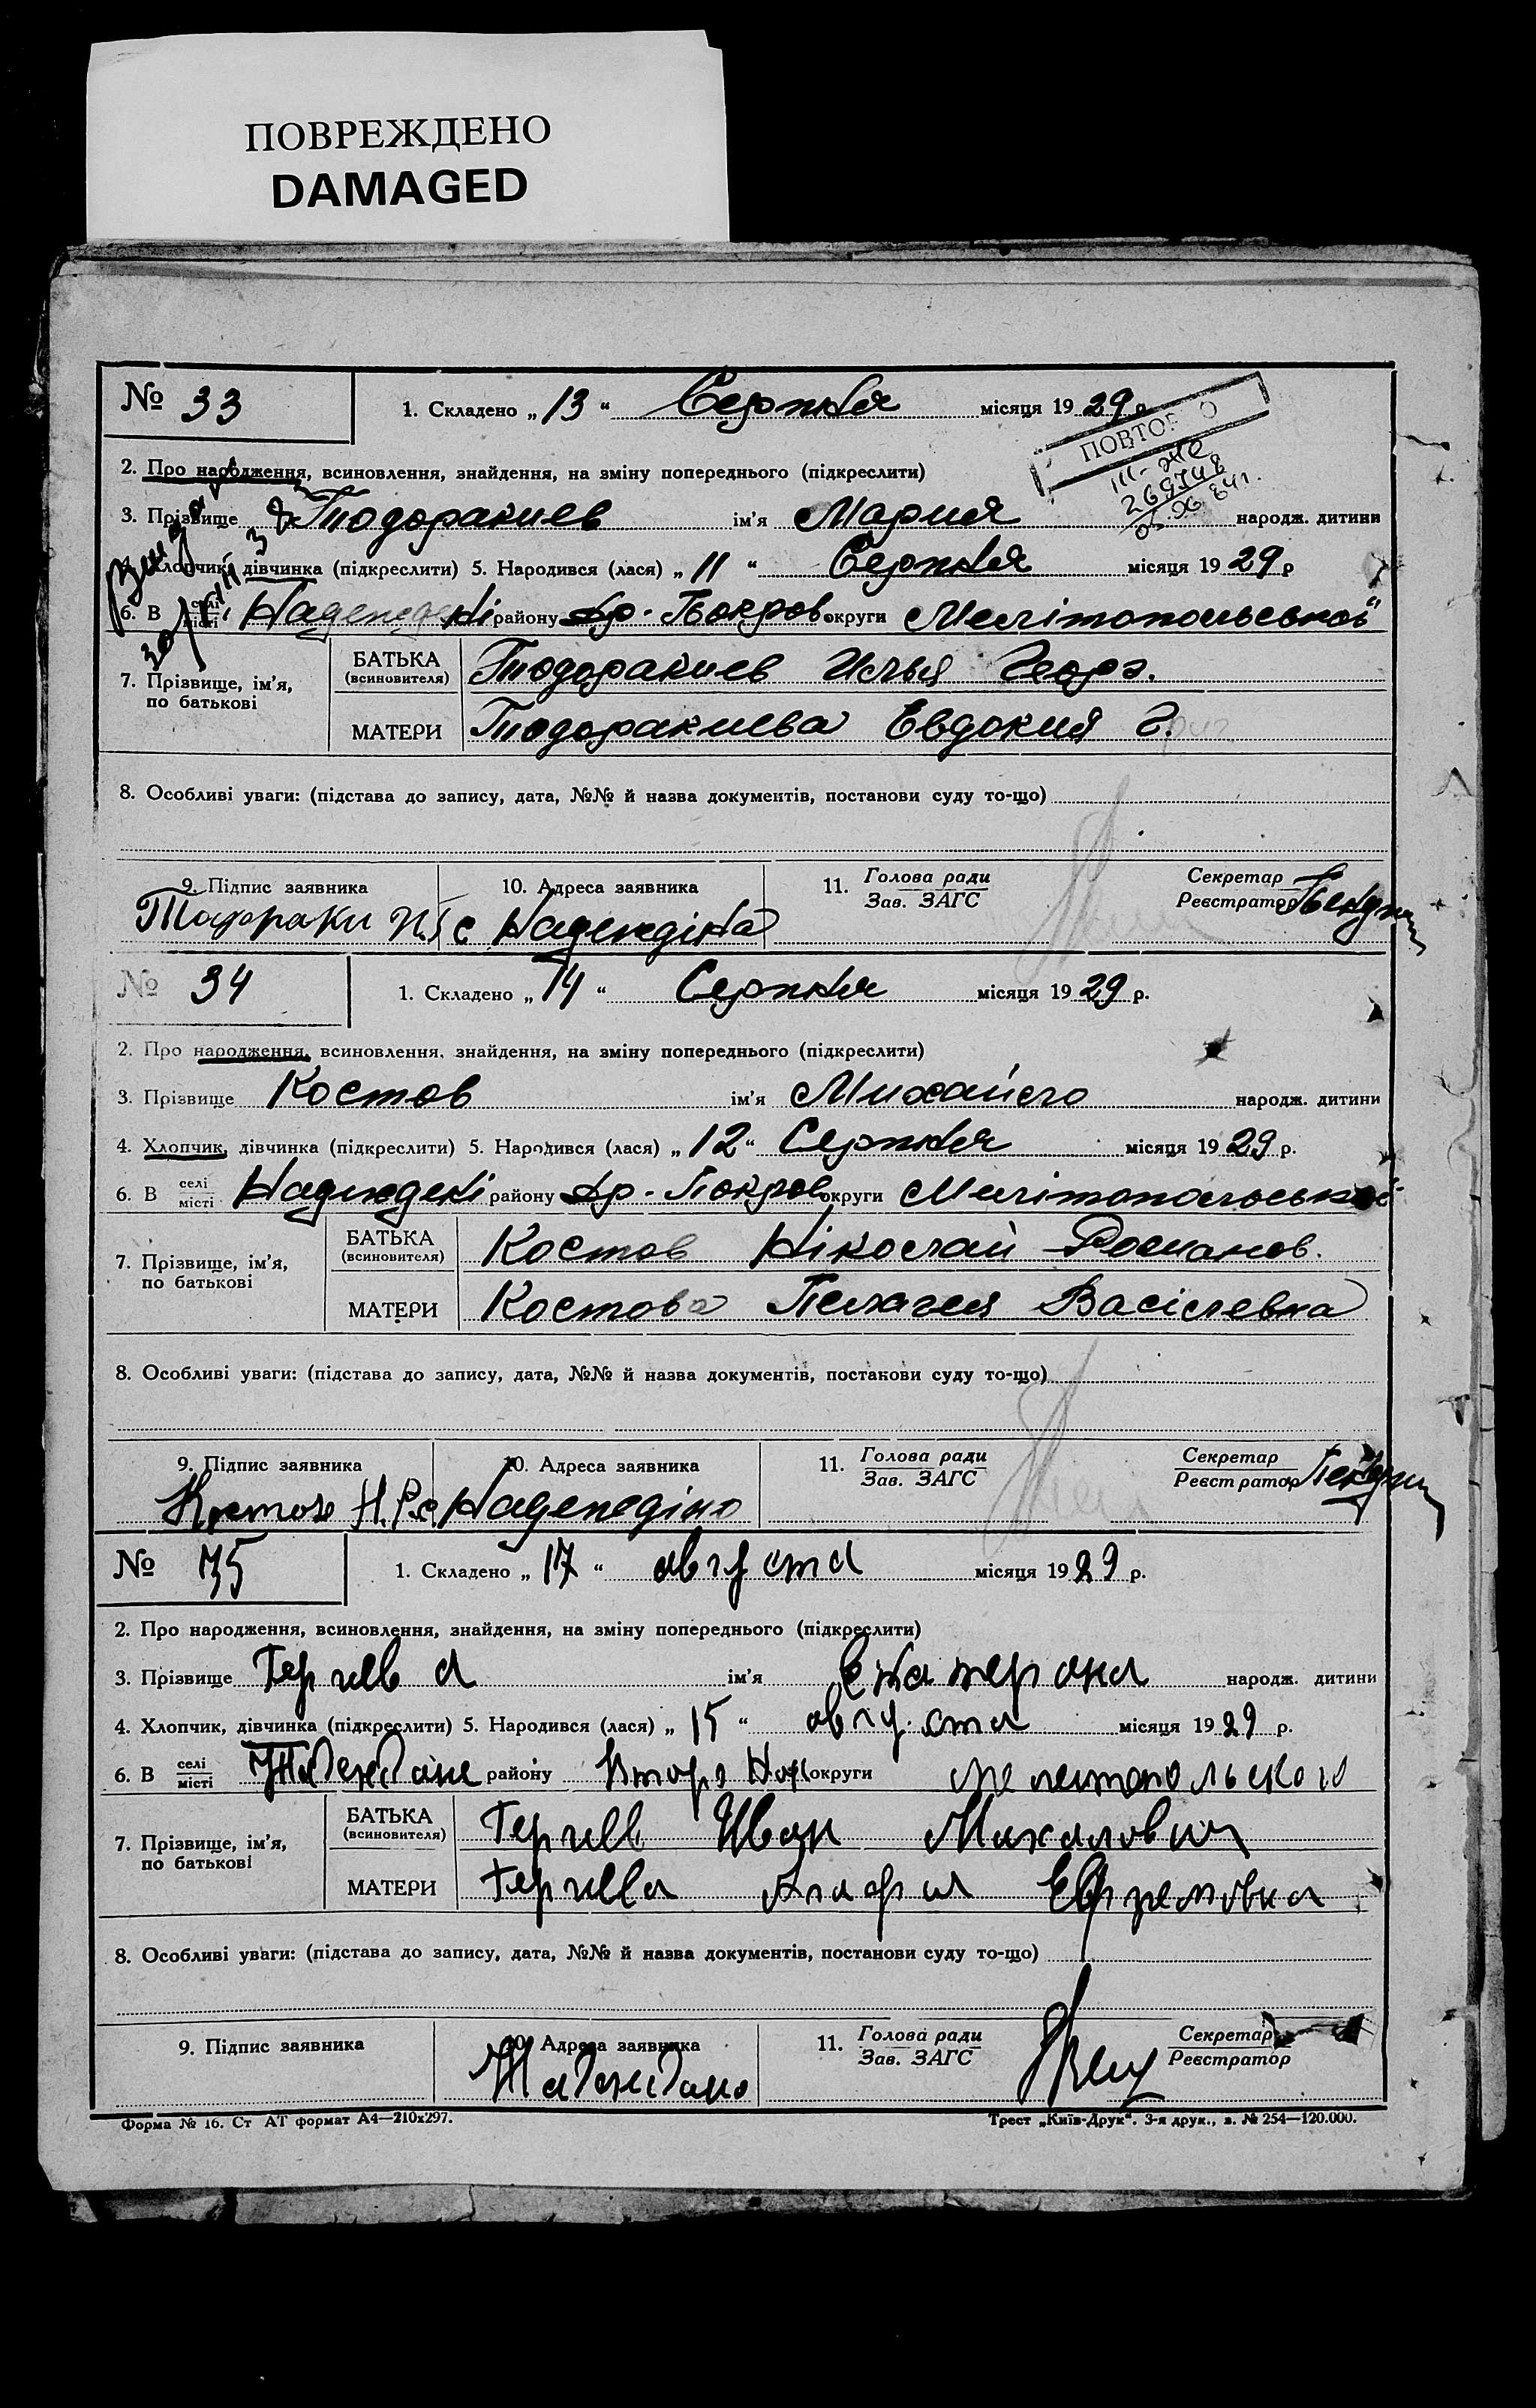 ПОВРЕЖДЕНО
DAMAGED
№ 33
1. Складено „ 13 “ Серпня місяця 19 29 р.
ПОВТОРНО
III-ЖС
269748
05.06.84г.
2. Про народження, всиновлення, знайдення, на зміну попереднього (підкреслити)
3. Прізвище Тодоракиев ім'я Мария народж. дитини
4. Хлопчик, дівчинка (підкреслити) 5. Народився (лася) „ 11 “ Серпня місяця 19 29 р
6. В селі місті Надеждені району Др.-Покров округи Мелітопольської
7. Прізвище, ім'я, по батькові
БАТЬКА (всиновителя) Тодоракиев Илья Георг.
МАТЕРИ Тодоракиева Евдокия Г.
8. Особливі уваги: (підстава до запису, дата, №№ й назва документів, постанови суду то-що)
9. Підпис заявника
10. Адреса заявника
11. Голова ради Зав. ЗАГС
Секретар Реєстратор
Тодораки И.
с Надендіна
№ 34
1. Складено „ 14 “ Серпня місяця 19 29 р.
2. Про народження, всиновлення, знайдення, на зміну попереднього (підкреслити)
3. Прізвище Костов ім'я Михайло народж. дитини
4. Хлопчик, дівчинка (підкреслити) 5. Народився (лася) „ 12 “ Серпня місяця 19 29 р.
6. В селі місті Надеждені району Др.-Покров округи Мелітопольської
7. Прізвище, ім'я, по батькові
БАТЬКА (всиновителя) Костов Ніколай Романов.
МАТЕРИ Костова Пелагея Васілевна
8. Особливі уваги: (підстава до запису, дата, №№ й назва документів, постанови суду то-що)
9. Підпис заявника
10. Адреса заявника
11. Голова ради Зав. ЗАГС
Секретар Реєстратор
Костов Н. Р.
с. Надеждіно
№ 35
1. Складено „ 17 “ августа місяця 19 29 р.
2. Про народження, всиновлення, знайдення, на зміну попереднього (підкреслити)
3. Прізвище Гергева ім'я Екатерина народж. дитини
4. Хлопчик, дівчинка (підкреслити) 5. Народився (лася) „ 15 “ августа місяця 19 29 р.
6. В селі місті району округи мелетопольского
7. Прізвище, ім'я, по батькові
БАТЬКА (всиновителя) Гергев Иван Михалович
МАТЕРИ Гергева Ефремовна
8. Особливі уваги: (підстава до запису, дата, №№ й назва документів, постанови суду то-що)
9. Підпис заявника
10. Адреса заявника
11. Голова ради Зав. ЗАГС
Секретар Реєстратор
Форма № 16. Ст АТ формат А4—210х297.
Трест „Київ-Друк“. 3-я друк., з. № 254—120.000.